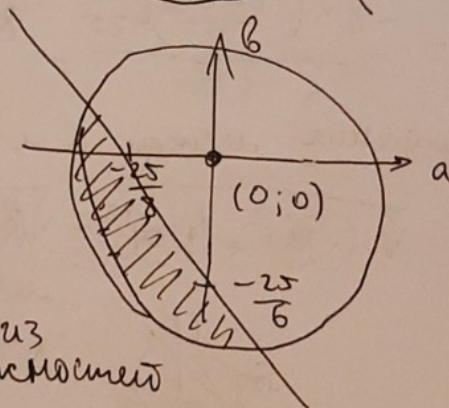 в
а
-25
8
(0;0)
-25
6
из